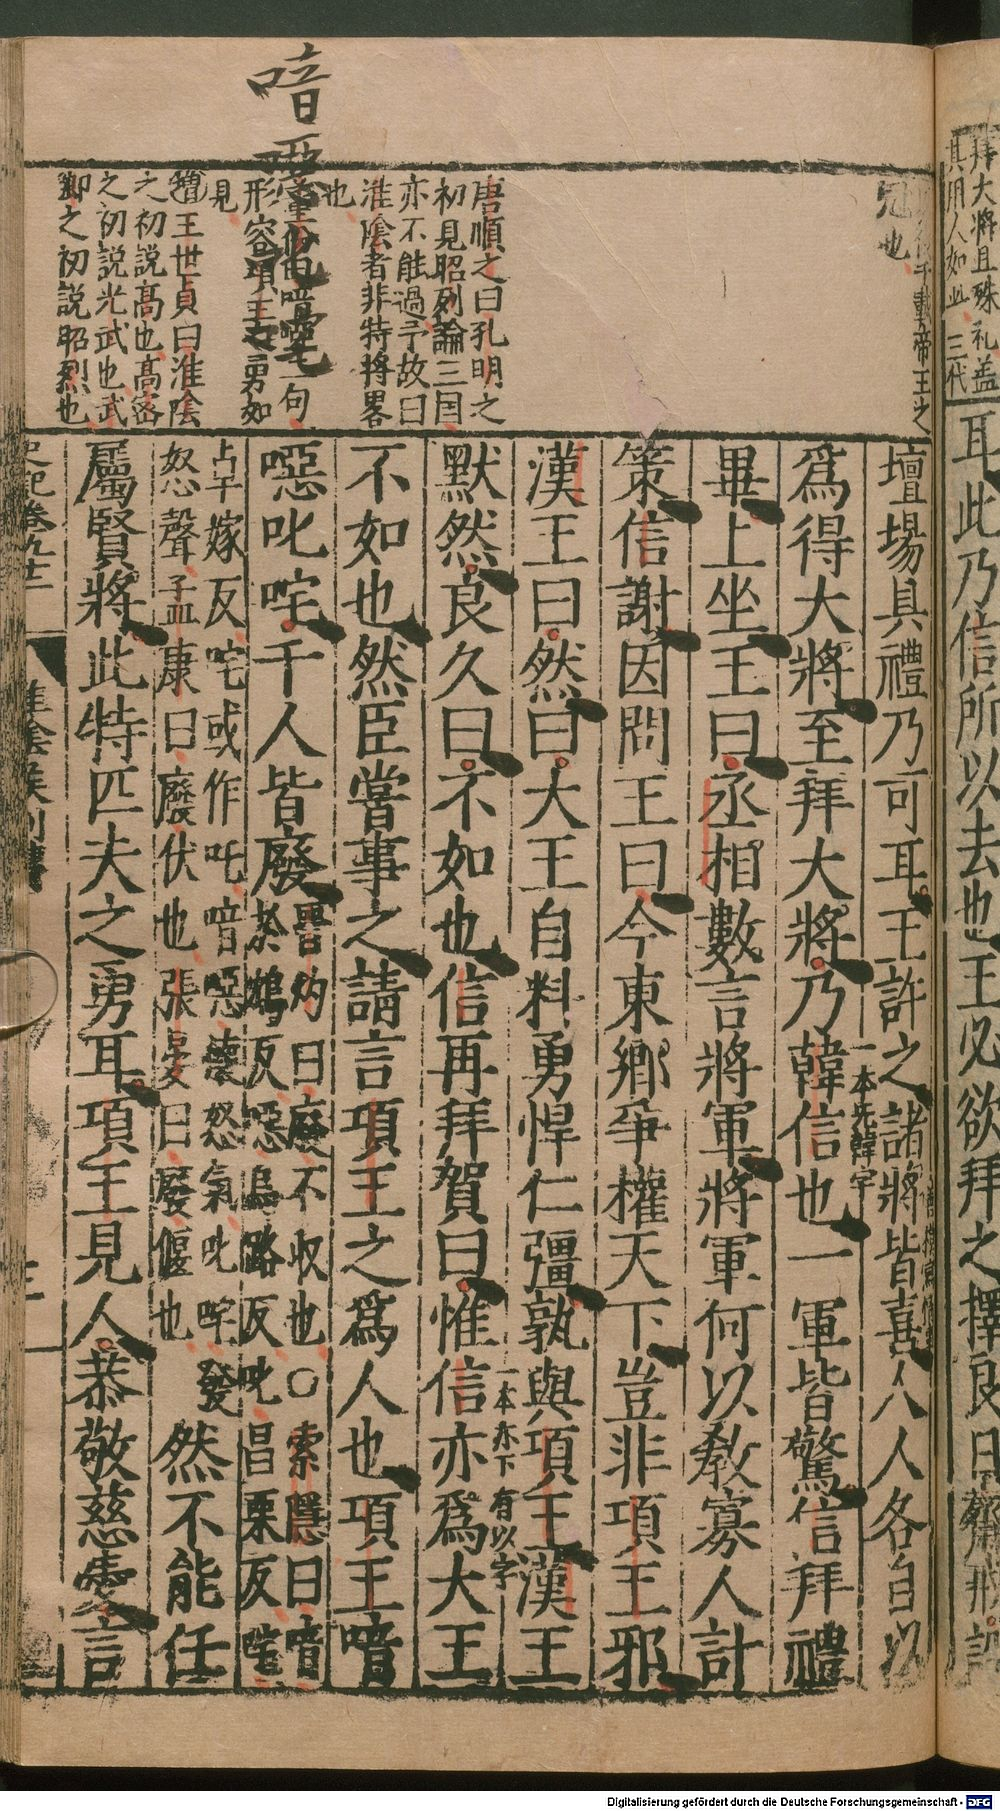 拜大將且殊礼盖
其用人如此三代
耳此乃信所以去也王必欲拜之擇良日齋戒設
帝王之
冠也
壇場具禮乃可耳王許之諸將皆喜人人各自以
爲得大將至拜大將乃韓信也一軍皆驚信拜禮
一本无韓字
畢上坐王曰丞相數言將軍將軍何以教寡人計
策信謝因問王曰今東鄉爭權天下豈非項王邪
漢王曰然曰大王自料勇悍仁彊孰與項王漢王
默然良久曰不如也信再拜賀曰惟信亦爲大王
一本亦下有以字
不如也然臣嘗事之請言項王之爲人也項王喑
噁叱咤千人皆廢
晋灼曰廢不收也○索隱曰喑
於鴆反噁烏路反叱昌栗反咤
卓嫁反咤或作吒喑噁懷怒氣叱咤發
怒聲孟康曰廢伏也張晏曰廢偃也
然不能任
屬賢將此特匹夫之勇耳項王見人恭敬慈愛言
唐順之曰孔明之
初見昭列論三国
亦不能過予故曰
淮陰者非特將畧
也
喑噁
形容項王之勇如
見
增王世貞曰淮陰
之初說高也高密
之初說光武也武
鄉之初說昭烈也
史記卷九十二
淮陰矦列傳
Digitalisierung gefördert durch die Deutsche Forschungsgemeinschaft - DFG